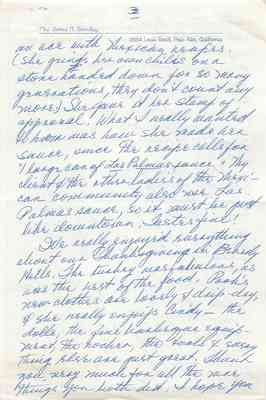 3
an ace with Mexican recipes.
(She grinds her own chiles on a
stone handed down for so many
generations, they don't count any
more) She gave it her stamp of
approval. What I really wanted
to know was how she made her
sauce, since the recipe calls for
1 large can of Las Palmas sauce. My
client & the other ladies of the Mexi-
can community also use Las
Palmas sauce, so it must be just
like downtown, tasteful!
We really enjoyed everything
about our Thanksgiving in Beverly
Hills. The turkey was fabulous, as
was the rest of the food.
new clothes are lovely &
& she really enjoys Candy — the
dolls, the fine barbeque equip-
ment, the books, the small &
thing else are just great. Thank
you very much for all the nice
things you both did. I hope you